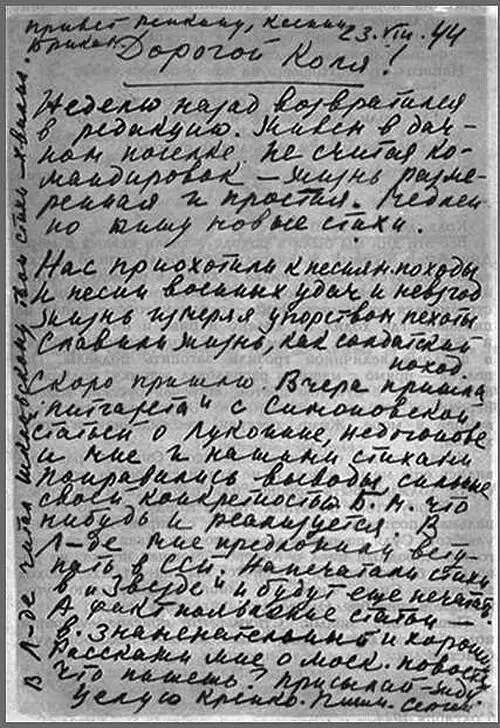 привет Пенкину, Ксении
23.VIII.44
Дорогой Коля!
Неделю назад возвратился
в редакцию. Живем в дач-
ном поселке. Не считая ко-
мандировок — жизнь разме-
ренная и простая. Медлен-
но пишу новые стихи.
Нас приохотили к песням походы
И песни военных удач и невзгод
Жизнь измеряя упорством пехоты
Славили жизнь, как солдатский
поход.
Скоро пришлю. Вчера пришла
"литгазета" с Симоновской
статьей о Луконине, Недогонове
и мне и нашими стихами
Понравились выводы, сильные
своей конкретностью. Б. м. что
нибудь и реализуется. В
Л-де мне предложили всту-
пать в ССП. Напечатали стихи
в "Звезде" и будут еще печатать.
А факт появление статьи —
в. знаменательный и хороший
Расскажи мне о моск. новостях
Что пишешь? Присылай - жду
Целую крепко. Пиши. Сергей.
В Л-де читал Шкловскому твои стихи - хвалил.